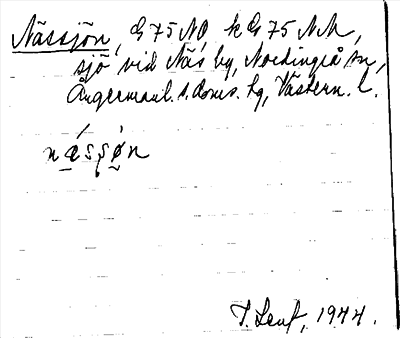 Nässjön, G 75 NO, k G 75 NM,
sjö vid Näs by, Nordingrå sn,
Ångermanl. s. doms. hg, Västern. l.
næsʂøn
T. Lenf, 1944.